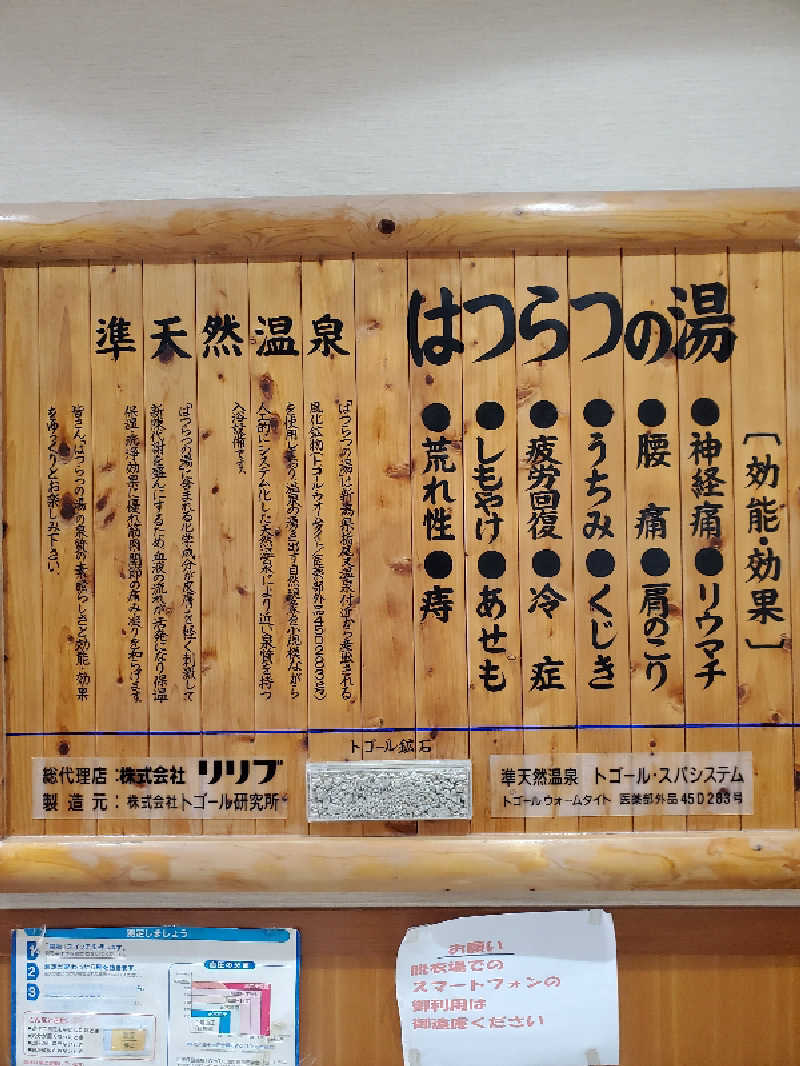 はつらつの湯
〔効能・効果〕
●神経痛●リウマチ
●腰痛●肩のこり
●うちみ●くじき
●疲労回復●冷症
●しもやけ●あせも
●荒れ性●痔
準天然温泉
「はつらつの湯」は新潟県
風化鉱物「トゴールウォームタイト」(医薬部外品45D283号)
を使用しており、温泉の湯を出す自然現象を小規模ながら
人工的にシステム化した天然温泉により近い泉質を持つ
入浴設備です。
「はつらつの湯」に含まれる化学成分が皮膚を軽く刺激して
新陳代謝を盛んにするため血液の流れが活発になり保温
保湿・洗浄効果に優れ筋肉関節の痛み凝りを和らげます。
皆さん、はつらつの湯の泉質の素晴らしさと効能・効果
をゆっくりとお楽しみ下さい。
トゴール鉱石
総代理店:株式会社 リリブ
製造元:株式会社トゴール研究所
準天然温泉 トゴール・スパシステム
トゴールウォームタイト 医薬部外品45D283号
測定しましょう
1
2
3
血圧の分類
お願い
脱衣場での
スマートフォンの
御利用は
御遠慮ください